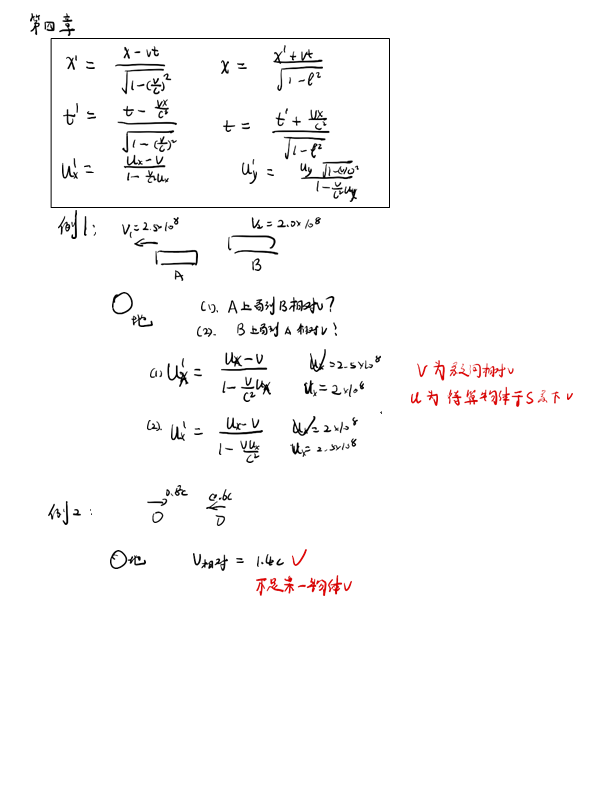 第四章
x' = (x - vt) / √(1-(v/c)²)    x = (x' + vt) / √(1-β²)
t' = (t - vx/c²) / √(1-(v/c)²)    t = (t' + vx/c²) / √(1-β²)
u'x = (ux - v) / (1 - v/c² ux)    u'y = uy √(1-(v/c)²) / (1 - v/c² ux)
例1: V₁=2.5×10⁸    V₂=2.0×10⁸
A    B
地
(1). A上看到B相对v?
(2). B上看到A相对v?
(1) u'x = (ux - v) / (1 - v/c² ux)    v=2.5×10⁸
ux = 2×10⁸
V为系之间相对v
u为待算物体于S系下v
(2). ux' = (ux - v) / (1 - vux/c²)    v=2×10⁸
ux = 2.5×10⁸
例2: 0.8c    0.6c
地    V相对 = 1.4c ✓
不是某一物体v